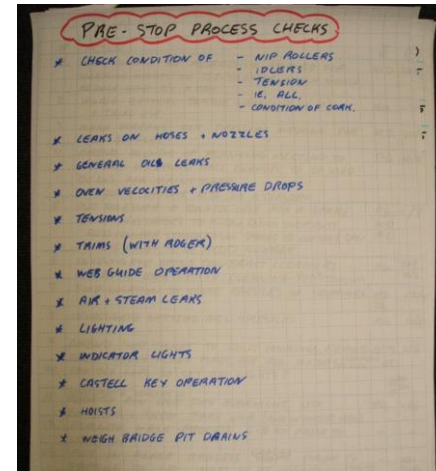 PRE-STOP PROCESS CHECKS
* CHECK CONDITION OF - NIP ROLLERS
- IDLERS
- TENSION
- IE. ALL.
- CONDITION OF CORK.
* LEAKS ON HOSES + NOZZLES
* GENERAL OILS LEAKS
* OVEN VELOCITIES + PRESSURE DROPS
* TENSIONS
* TRIMS (WITH ROGER)
* WEB GUIDE OPERATION
* AIR + STEAM LEAKS
* LIGHTING
* INDICATOR LIGHTS
* CASTELL KEY OPERATION
* HOISTS
* WEIGH BRIDGE PIT DRAINS